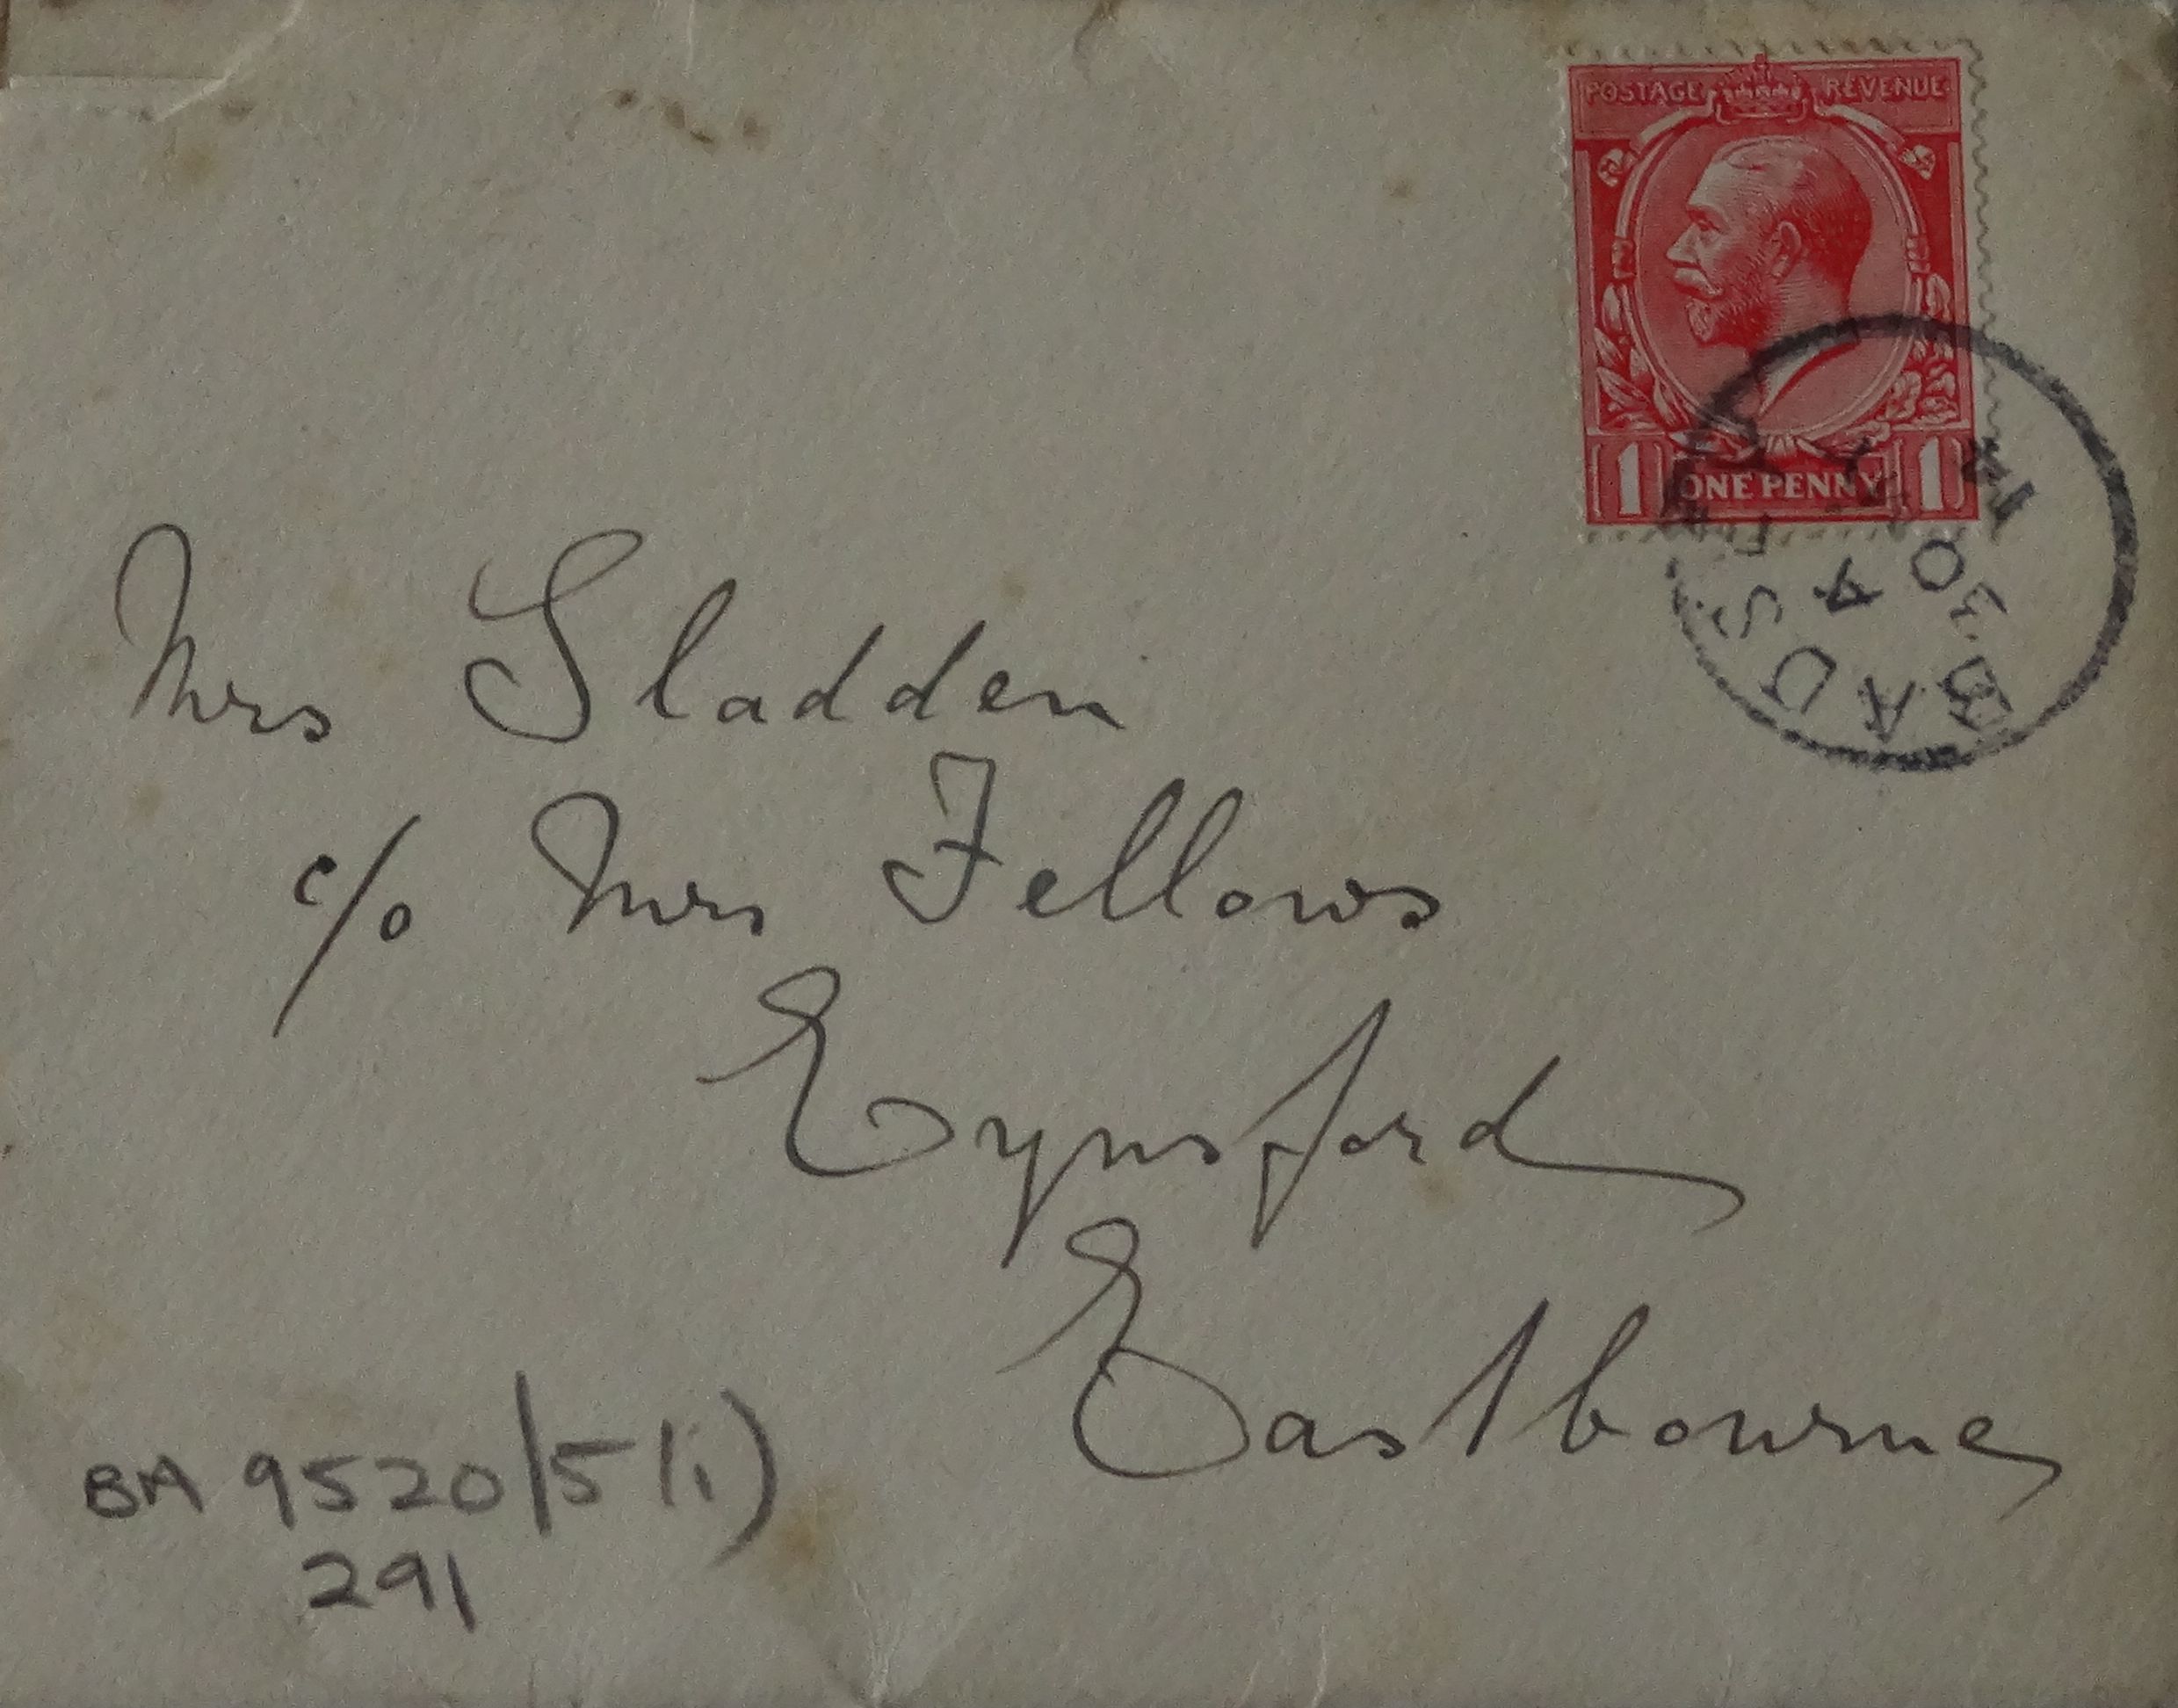 POSTAGE REVENUE
1 ONE PENNY 1
BADSEY
A
30
Mrs Sladden
c/o Mrs Fellows
Eynsford
Eastbourne
BA 9520/5(i)
291